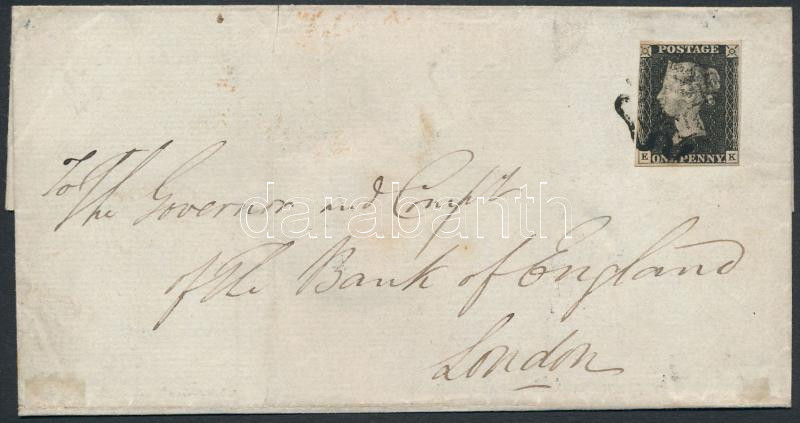 POSTAGE
E ONE PENNY K
To
The Governor and Comp.y
of the Bank of England
London
darabanth